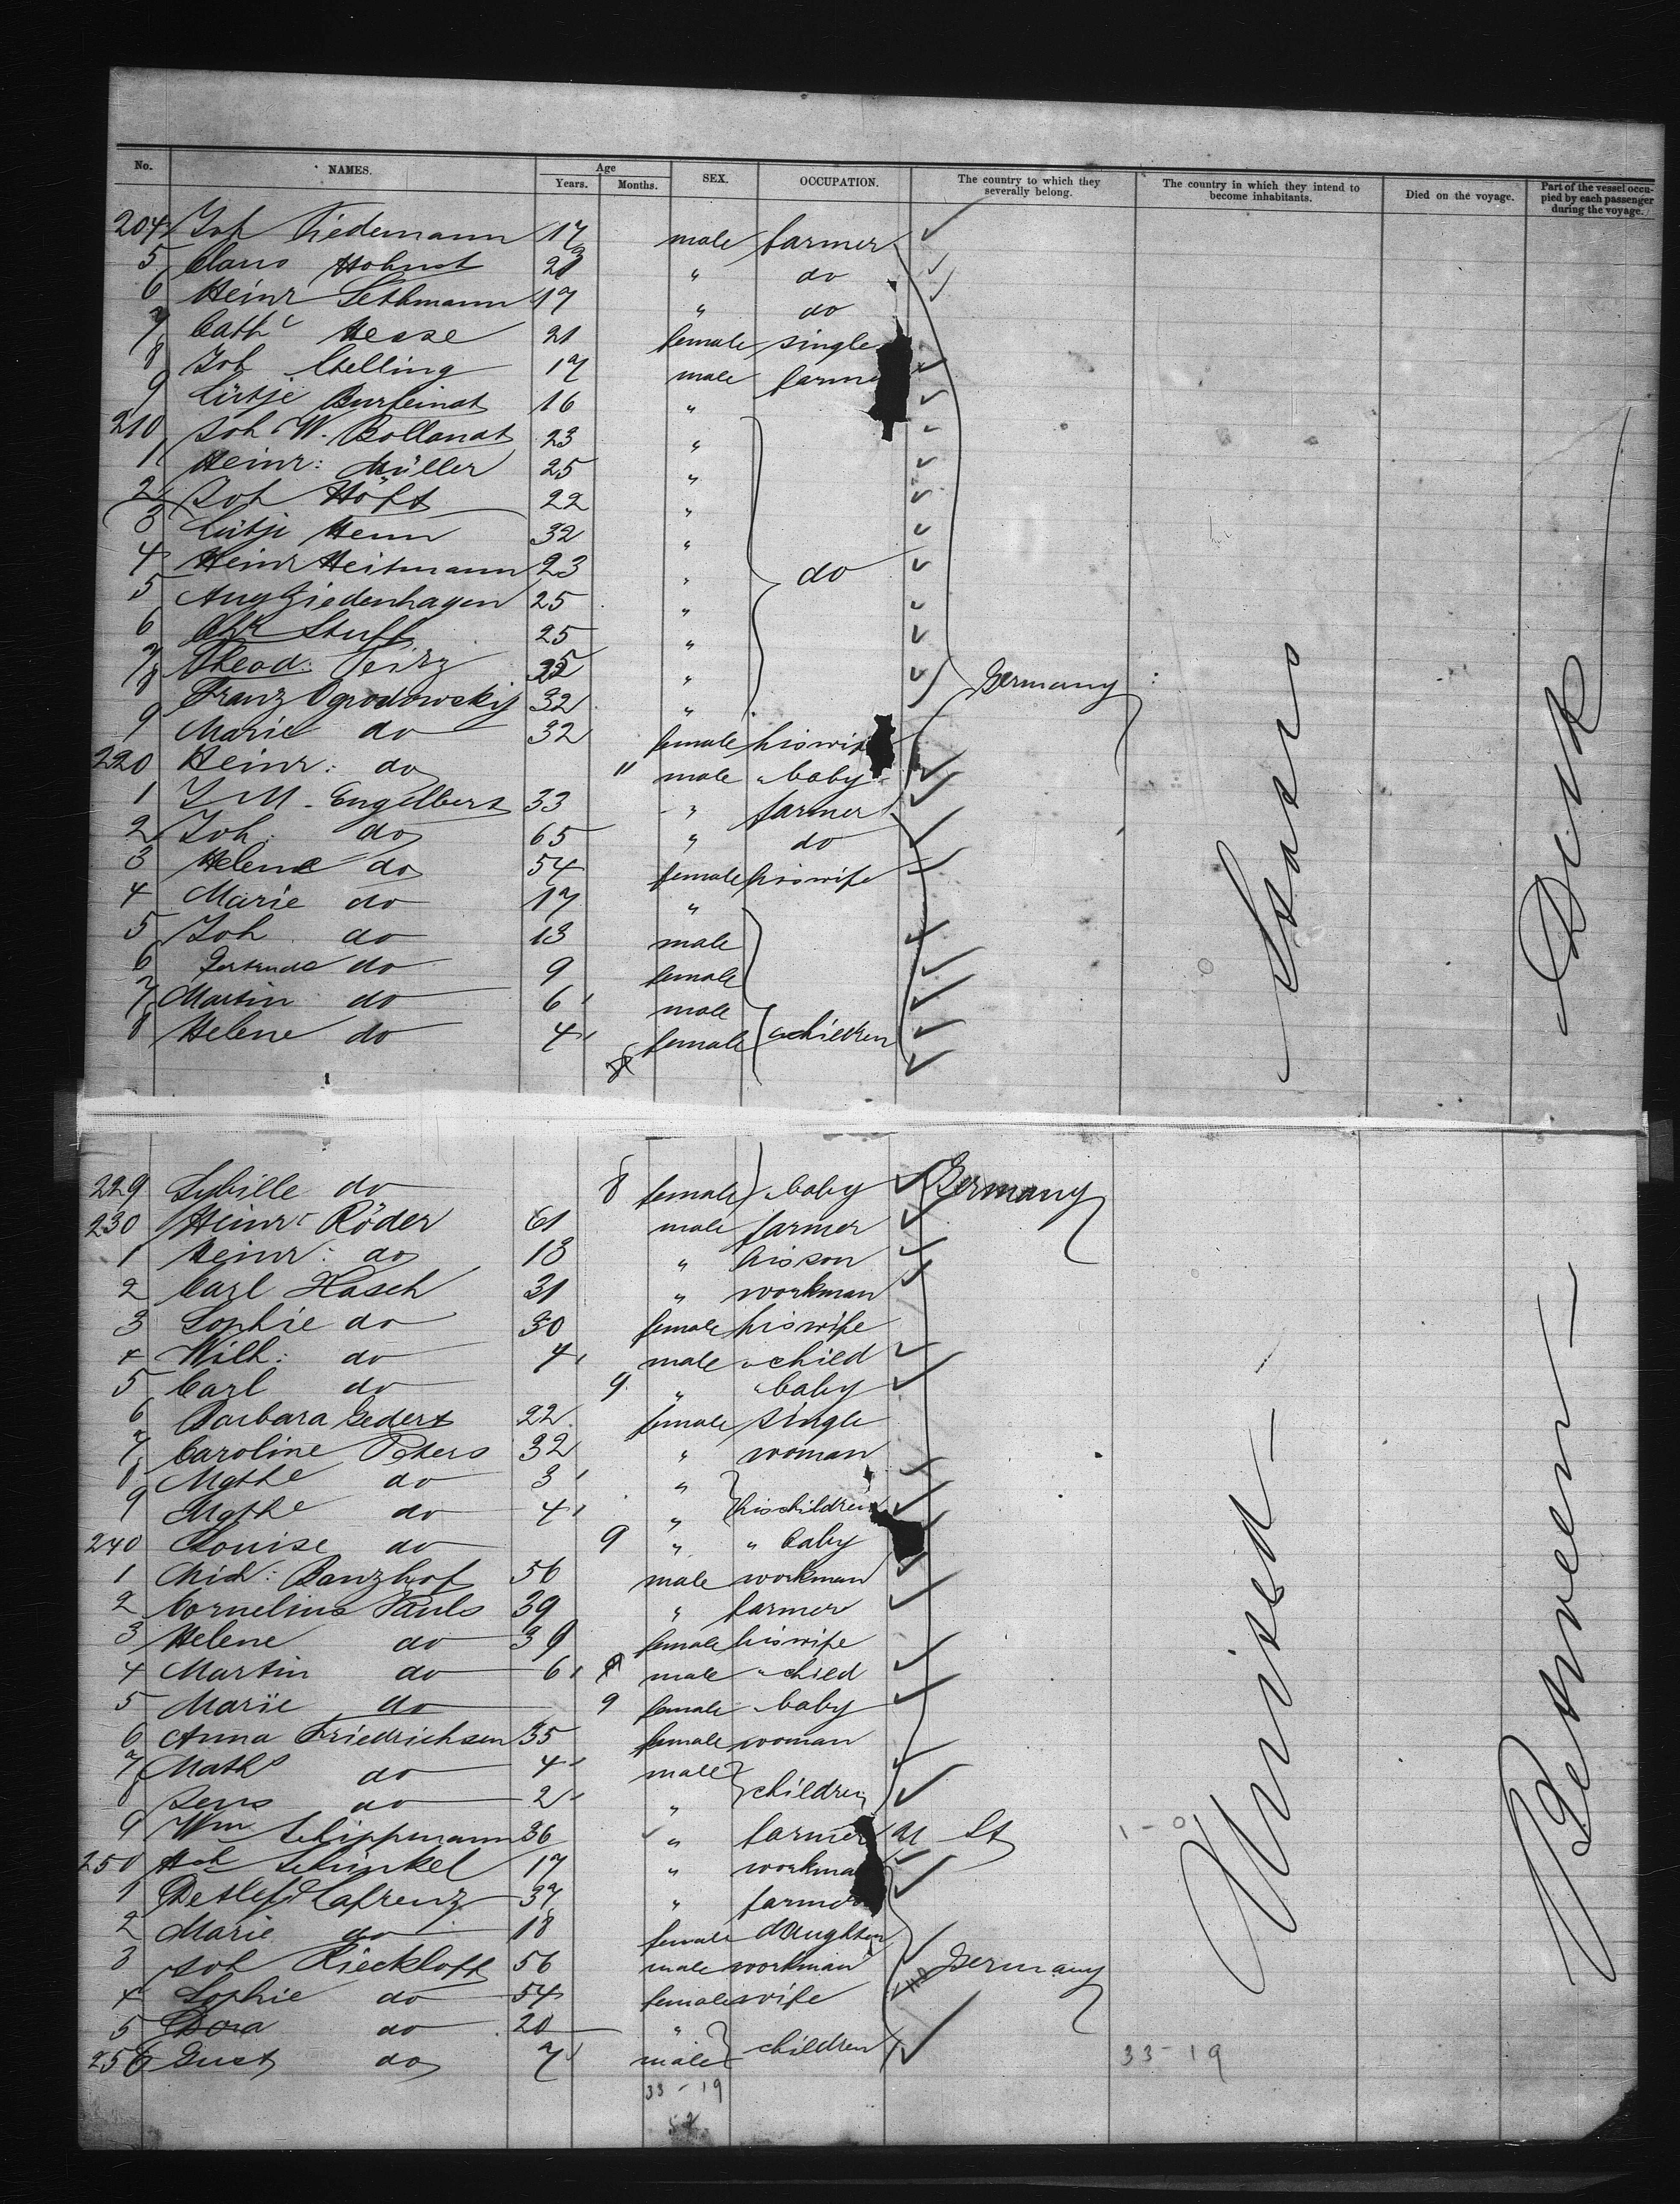 No. NAMES. Age Years. Months. SEX. OCCUPATION. The country to which they severally belong. The country in which they intend to become inhabitants. Died on the voyage. Part of the vessel occupied by each passenger during the voyage.
204 Joh Tiedemann 17 male farmer
5 Claus Hohnst 21 " do
6 Heinr Lethmann 17 " do
7 Cath Hesse 21 female single
8 Joh Stelling 17 male farmer
9 Lütje Burfeindt 16 "
210 Joh W. Bollandt 23 "
1 Heinr: Müller 25 "
2 Joh Höft 22 "
3 Lütje Henn 32 "
4 Heinr Heitmann 23 " do
5 Aug Ziedenhagen 25 "
6 Stuff 25 "
7 Theod: Peitz "
8 Franz Ogrodowskij 32 " Germany
9 Marie do 32 female his wife
220 Heinr: do 11 male " baby
1 J M. Engelbert 33 " farmer
2 Joh: do 65 " do
3 Helene do 54 female his wife
4 Marie do 17 "
5 Joh do 13 male
6 Gertrude do 9 female
7 Martin do 6 male
8 Helene do 4 female " children
States
Deck
229 Sybille do 8 female " baby Germany
230 Heinr Röder 61 male farmer
1 Heinr: do 13 " his son
2 Carl Hasch 31 " workman
3 Sophie do 30 female his wife
4 Wilh: do 4 male " child
5 Carl do 9 " " baby
6 Barbara Gedert 22 female single
7 Caroline Peters 32 " woman
8 Mathe do 3 "
9 Mathe do 4 " his children
240 Louise do 9 " " baby
1 Mich: Banzhof 56 male workman
2 Cornelius Pauls 39 " farmer
3 Helene do 39 female his wife
4 Martin do 6 male " child
5 Marie do 9 female baby
6 Anna Friedrichsen 35 female woman
7 Math do 4 male
8 Jens do 2 " children
9 Wm Schippmann 36 " farmer U St 1-0
250 Schinkel 17 " workman
1 Detlef Lafrenz 37 " farmer
2 Marie do 18 female daughter
3 Joh Rieckloff 56 male workman Germany
4 Sophie do 54 female wife
5 Dora do 20 "
256 Gust do 7 male children
33-19
33-19
52
United
Between